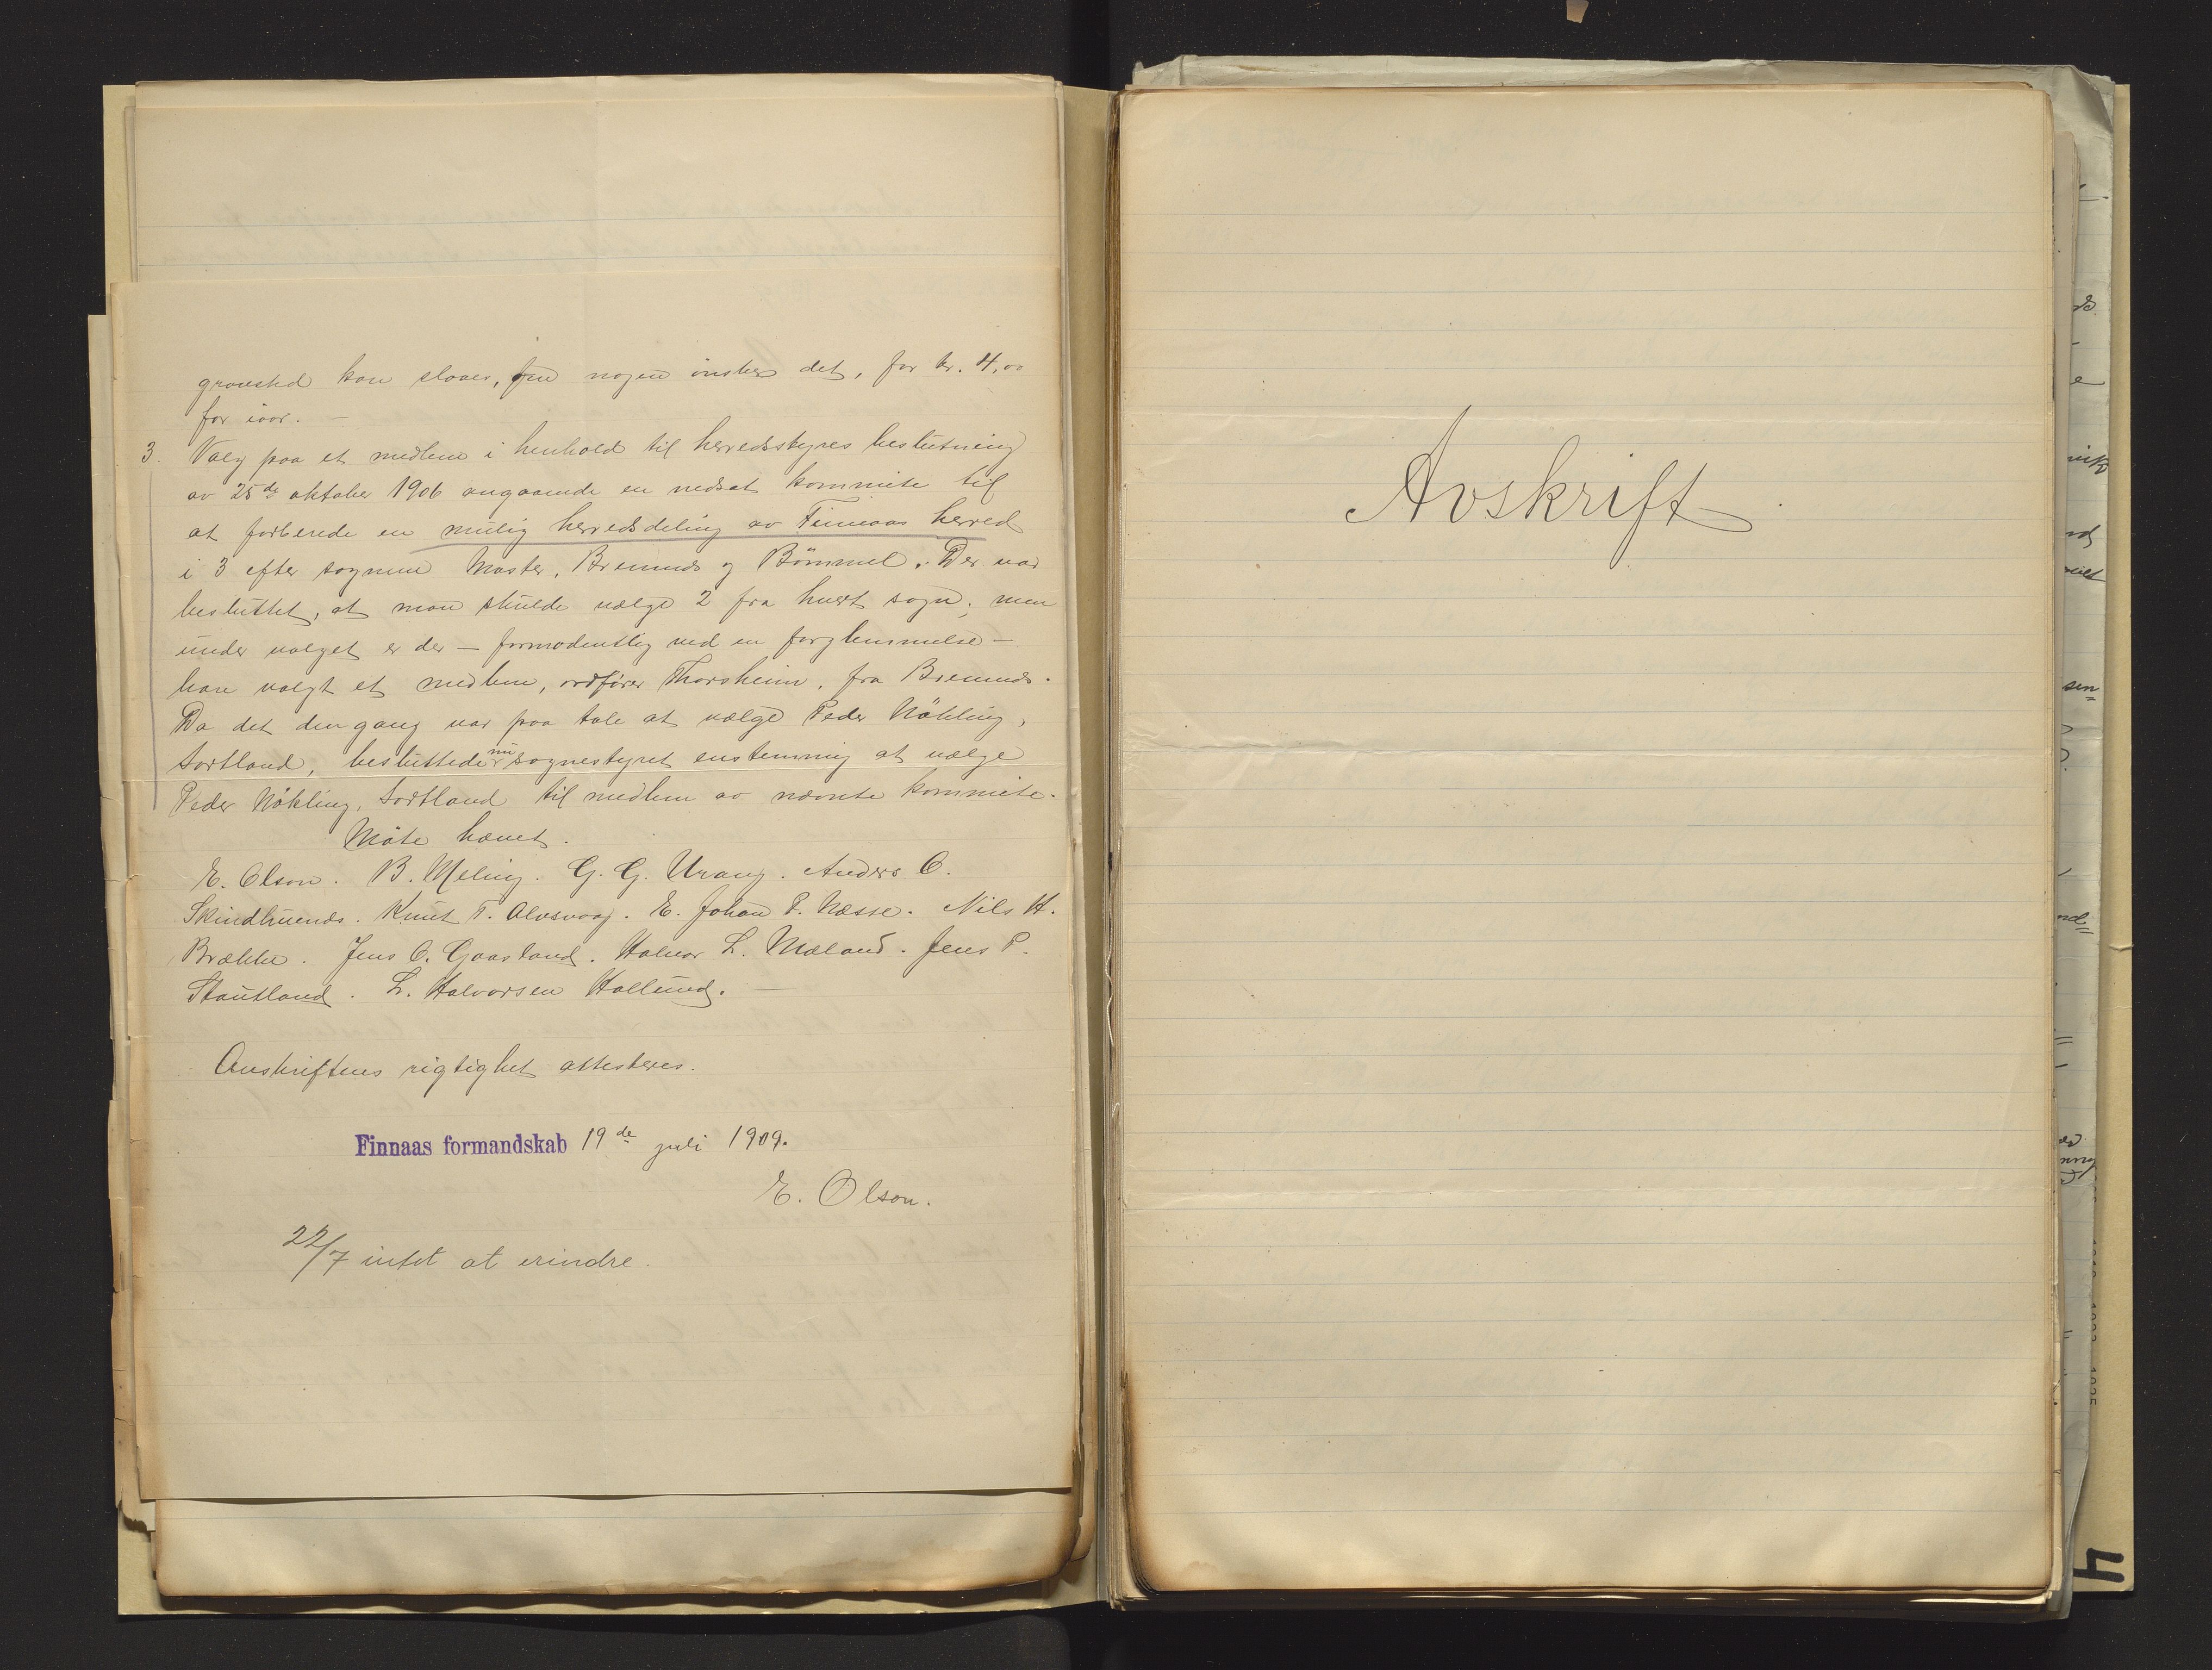 gravsted kan sløies, om nogen ønsker det, for kr. 4,00
for iaar. —
3. Valg paa et medlem i henhold til herredsstyres beslutning
av 25de oktober 1906 angaaende en nedsat kommite til
at forberede en mulig herredsdeling av Finnaas herred
i 3 efter sognene Moster, Bremnes og Bømmel. Der var
besluttet, at man skulde vælge 2 fra hvert sogn; men
under valget er der — formodentlig ved en forglemmelse —
bare valgt et medlem, ordfører Thorsheim, fra Bremnes.
Da det dengang var paa tale at vælge Peder Nökling,
Sortland, besluttede nu sognestyret enstemmig at vælge
Peder Nökling, Sortland til medlem av nævnte kommite.
Möte hævet.
E. Olson. B. Meling. G. G. Urang. Anders O.
Skindhuends. Knut T. Alvsvaag. E. Johan P. Næsse. Nils H.
Brække. Jens O. Gaasland. Halvor L. Mæland. Jens P.
Stautland. L. Halvorsen Hollund. —
Avskriftens rigtighet attesteres.
Finnaas formandskab 19de juli 1909.
E. Olson.
22/7 intet at erindre.
Avskrift
4